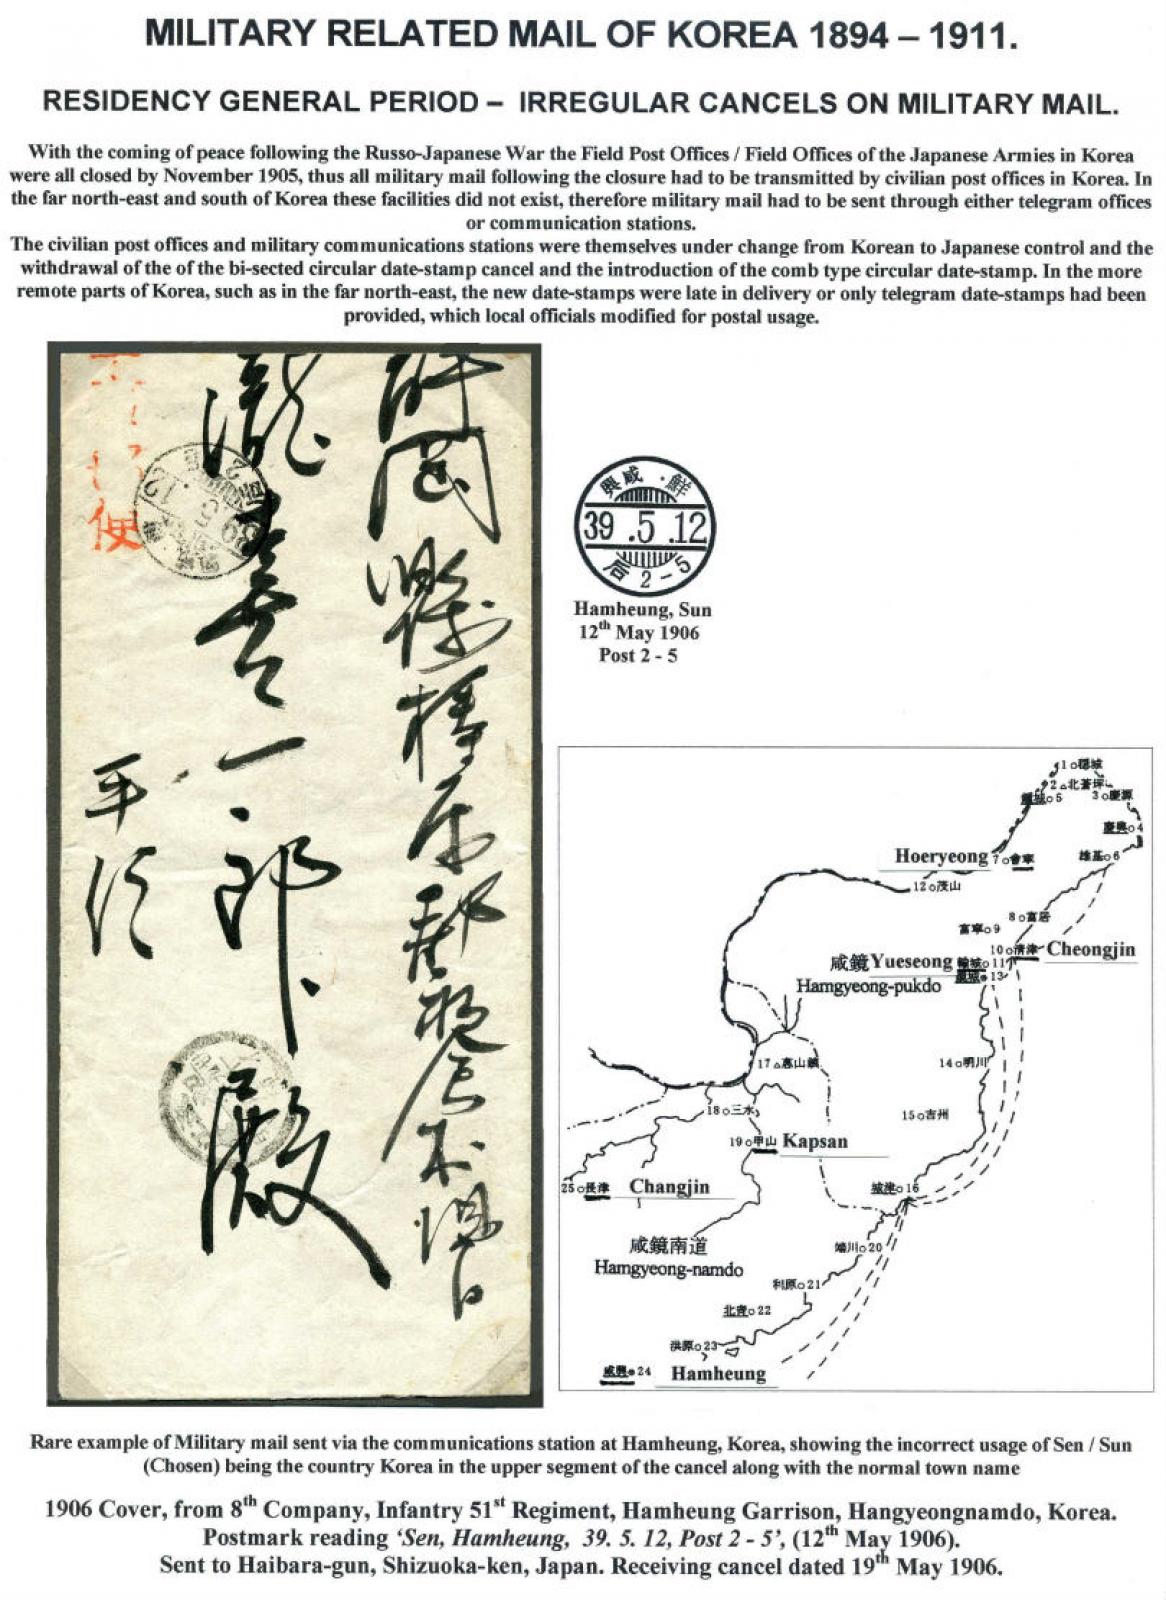 MILITARY RELATED MAIL OF KOREA 1894 – 1911.
RESIDENCY GENERAL PERIOD – IRREGULAR CANCELS ON MILITARY MAIL.
With the coming of peace following the Russo-Japanese War the Field Post Offices / Field Offices of the Japanese Armies in Korea
were all closed by November 1905, thus all military mail following the closure had to be transmitted by civilian post offices in Korea. In
the far north-east and south of Korea these facilities did not exist, therefore military mail had to be sent through either telegram offices
or communication stations.
The civilian post offices and military communications stations were themselves under change from Korean to Japanese control and the
withdrawal of the of the bi-sected circular date-stamp cancel and the introduction of the comb type circular date-stamp. In the more
remote parts of Korea, such as in the far north-east, the new date-stamps were late in delivery or only telegram date-stamps had been
provided, which local officials modified for postal usage.
便
岡縣榛原郡
一郎
殿
平信
興咸・鮮
39.5.12
后 2-5
Hamheung, Sun
12th May 1906
Post 2 - 5
1 隠城
2 北蒼坪
5
3 慶源
慶興 4
雄基 6
Hoeryeong 7 會寧
12 茂山
8 富居
富寧 9
10 清津 Cheongjin
咸鏡 Yueseong 輸城 11
鏡城 13
Hamgyeong-pukdo
14 明川
17 惠山鎮
18 三水
15 吉州
19 甲山 Kapsan
25 長津 Changjin
城津 16
咸鏡南道
Hamgyeong-namdo
端川 20
利原 21
北青 22
洪原 23
咸興 24 Hamheung
Rare example of Military mail sent via the communications station at Hamheung, Korea, showing the incorrect usage of Sen / Sun
(Chosen) being the country Korea in the upper segment of the cancel along with the normal town name
1906 Cover, from 8th Company, Infantry 51st Regiment, Hamheung Garrison, Hangyeongnamdo, Korea.
Postmark reading ‘Sen, Hamheung, 39. 5. 12, Post 2 - 5’, (12th May 1906).
Sent to Haibara-gun, Shizuoka-ken, Japan. Receiving cancel dated 19th May 1906.